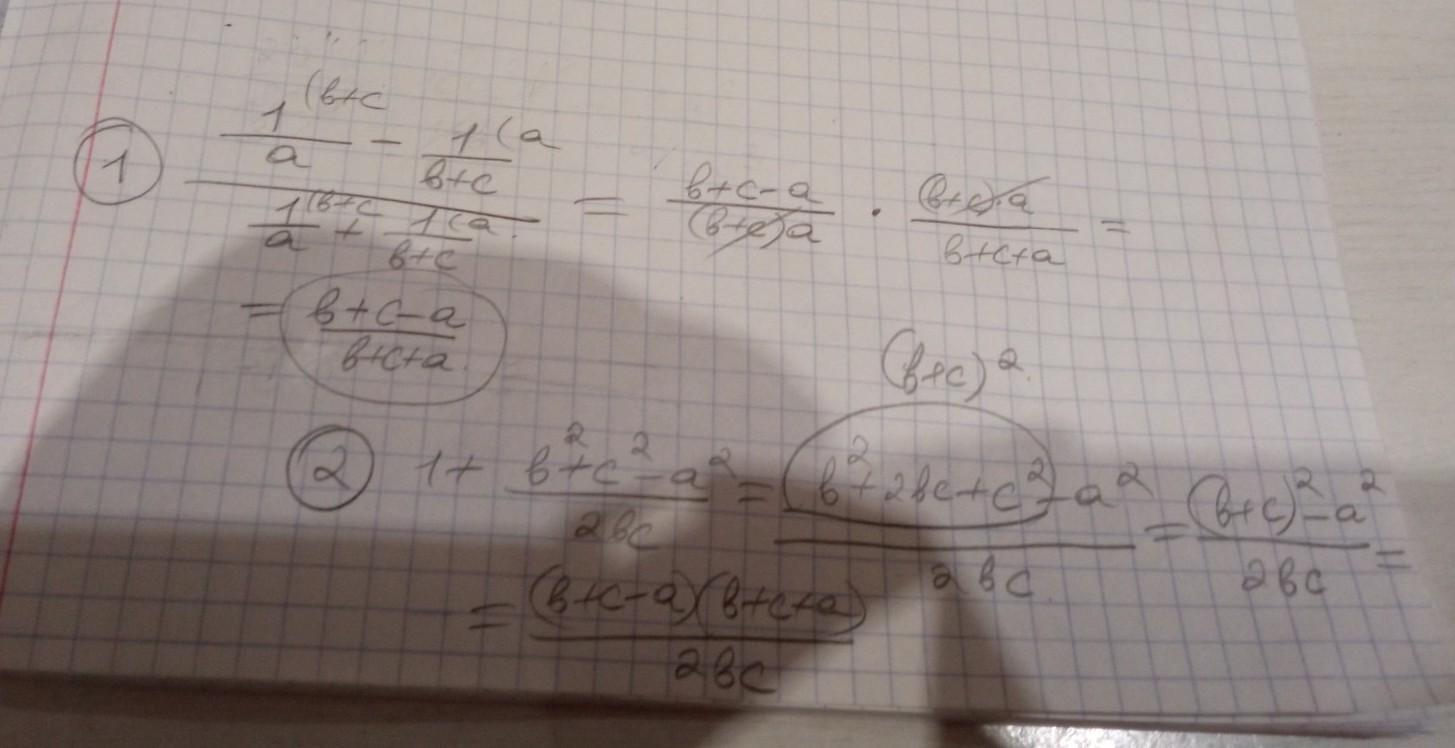 ① (1/a (b+c - 1/(b+c) (a) / (1/a (b+c + 1/(b+c) (a) = (b+c-a)/((b+c)a) · ((b+c)·a)/(b+c+a) =
= (b+c-a)/(b+c+a)
(b+c)²
② 1 + (b²+c²-a²)/(2bc) = (b²+2bc+c²-a²)/(2bc) = ((b+c)²-a²)/(2bc) =
= ((b+c-a)(b+c+a))/(2bc)